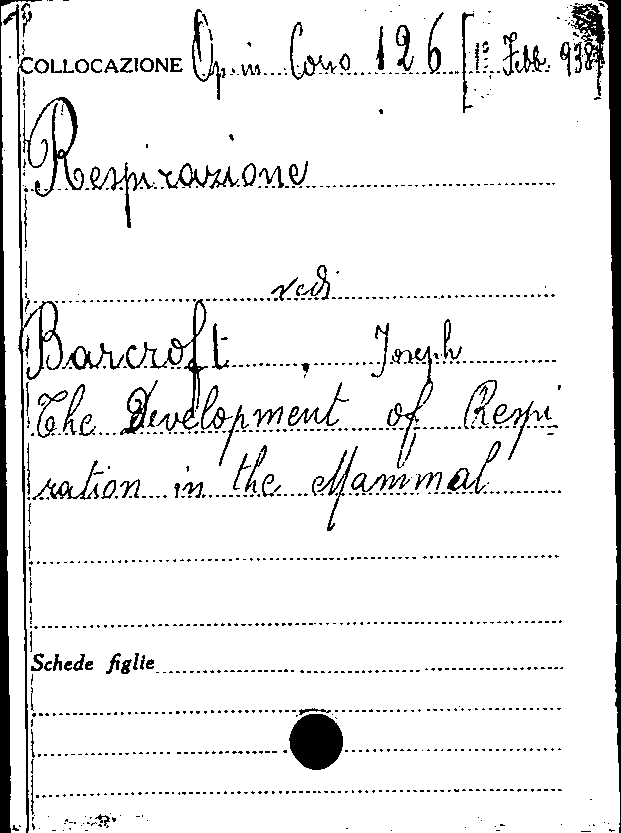 COLLOCAZIONE Op. in Corso 126 [1º Febb. 938]
Respirazione
vedi
Barcroft, Joseph
The Development of Respi-
ration in the Mammal
Schede figlie